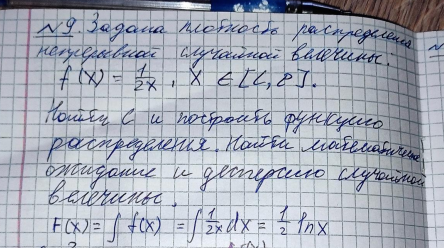 №9 Задана плотность распределения
непрерывной случайной велечины.
f(x) = 1/2x , X ∈ [C, e].
Найти C и построить функцию
распределения. Найти математичес
ожидание и дисперсию случайной
велечины.
F(x) = ∫ f(x) = ∫ 1/2x dx = 1/2 ln x